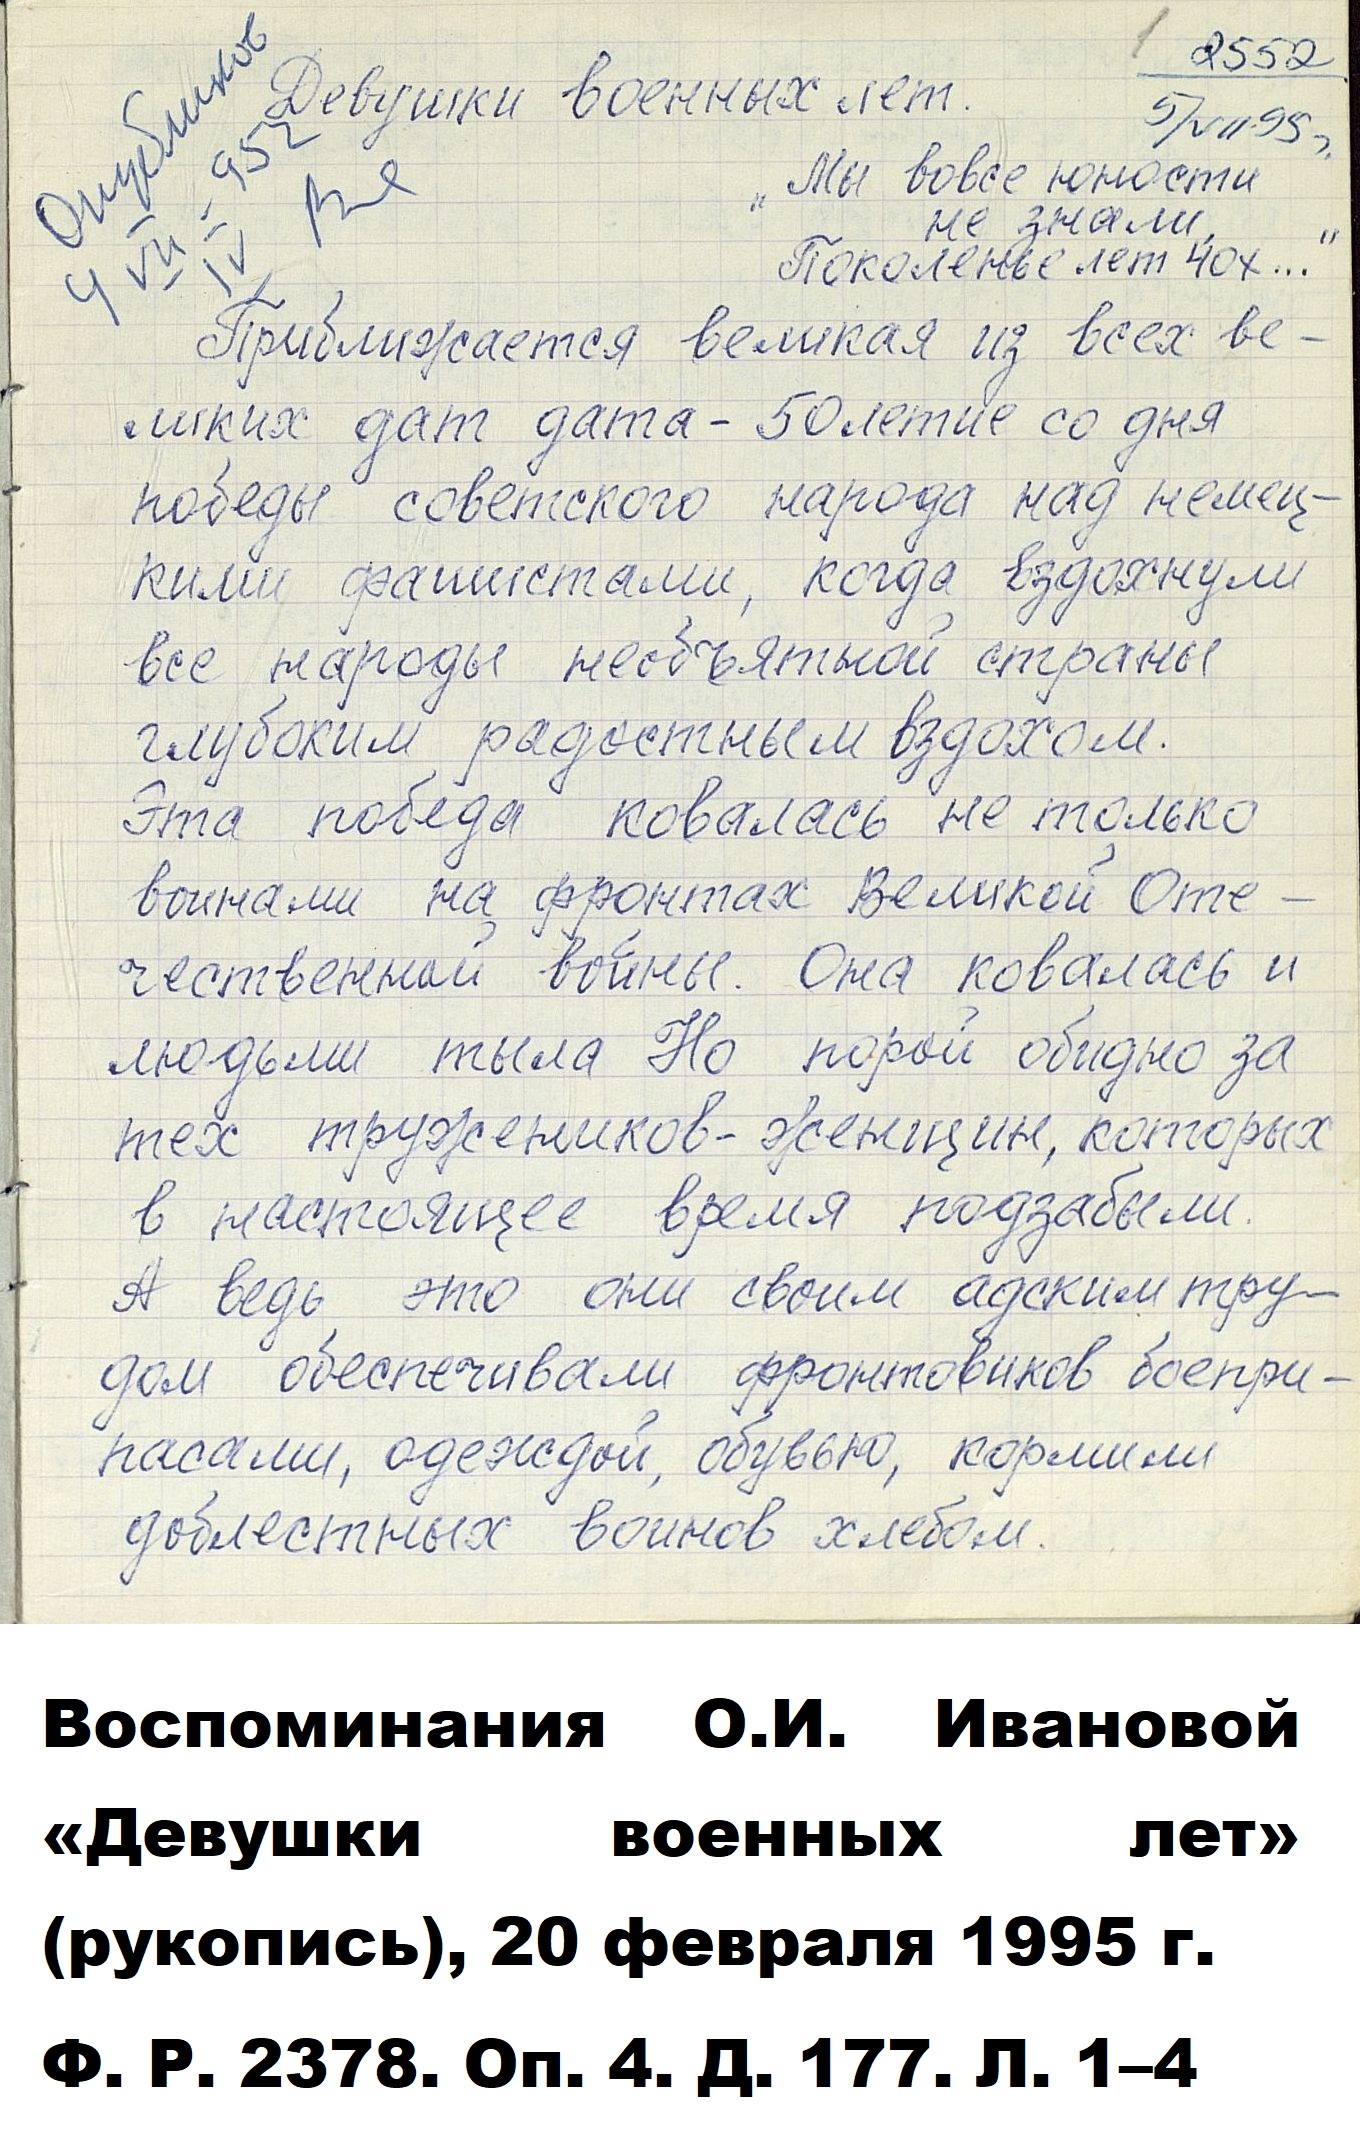 1
2552
5/VII-95г.
Опубликов
4 VII - 952
IV
Девушки военных лет.
„Мы вовсе юности
не знали,
Поколенье лет 40х..."
Приближается великая из всех ве-
ликих дат дата - 50летие со дня
победы советского народа над немец-
кими фашистами, когда вздохнули
все народы необъятной страны
глубоким радостным вздохом.
Эта победа ковалась не только
воинами на фронтах Великой Оте-
чественной войны. Она ковалась и
людьми тыла Но порой обидно за
тех тружеников-женщин, которых
в настоящее время подзабыли.
А ведь это они своим адским тру-
дом обеспечивали фронтовиков боепри-
пасами, одеждой, обувью, кормили
доблестных воинов хлебом.
Воспоминания О.И. Ивановой
«Девушки военных лет»
(рукопись), 20 февраля 1995 г.
Ф. Р. 2378. Оп. 4. Д. 177. Л. 1–4